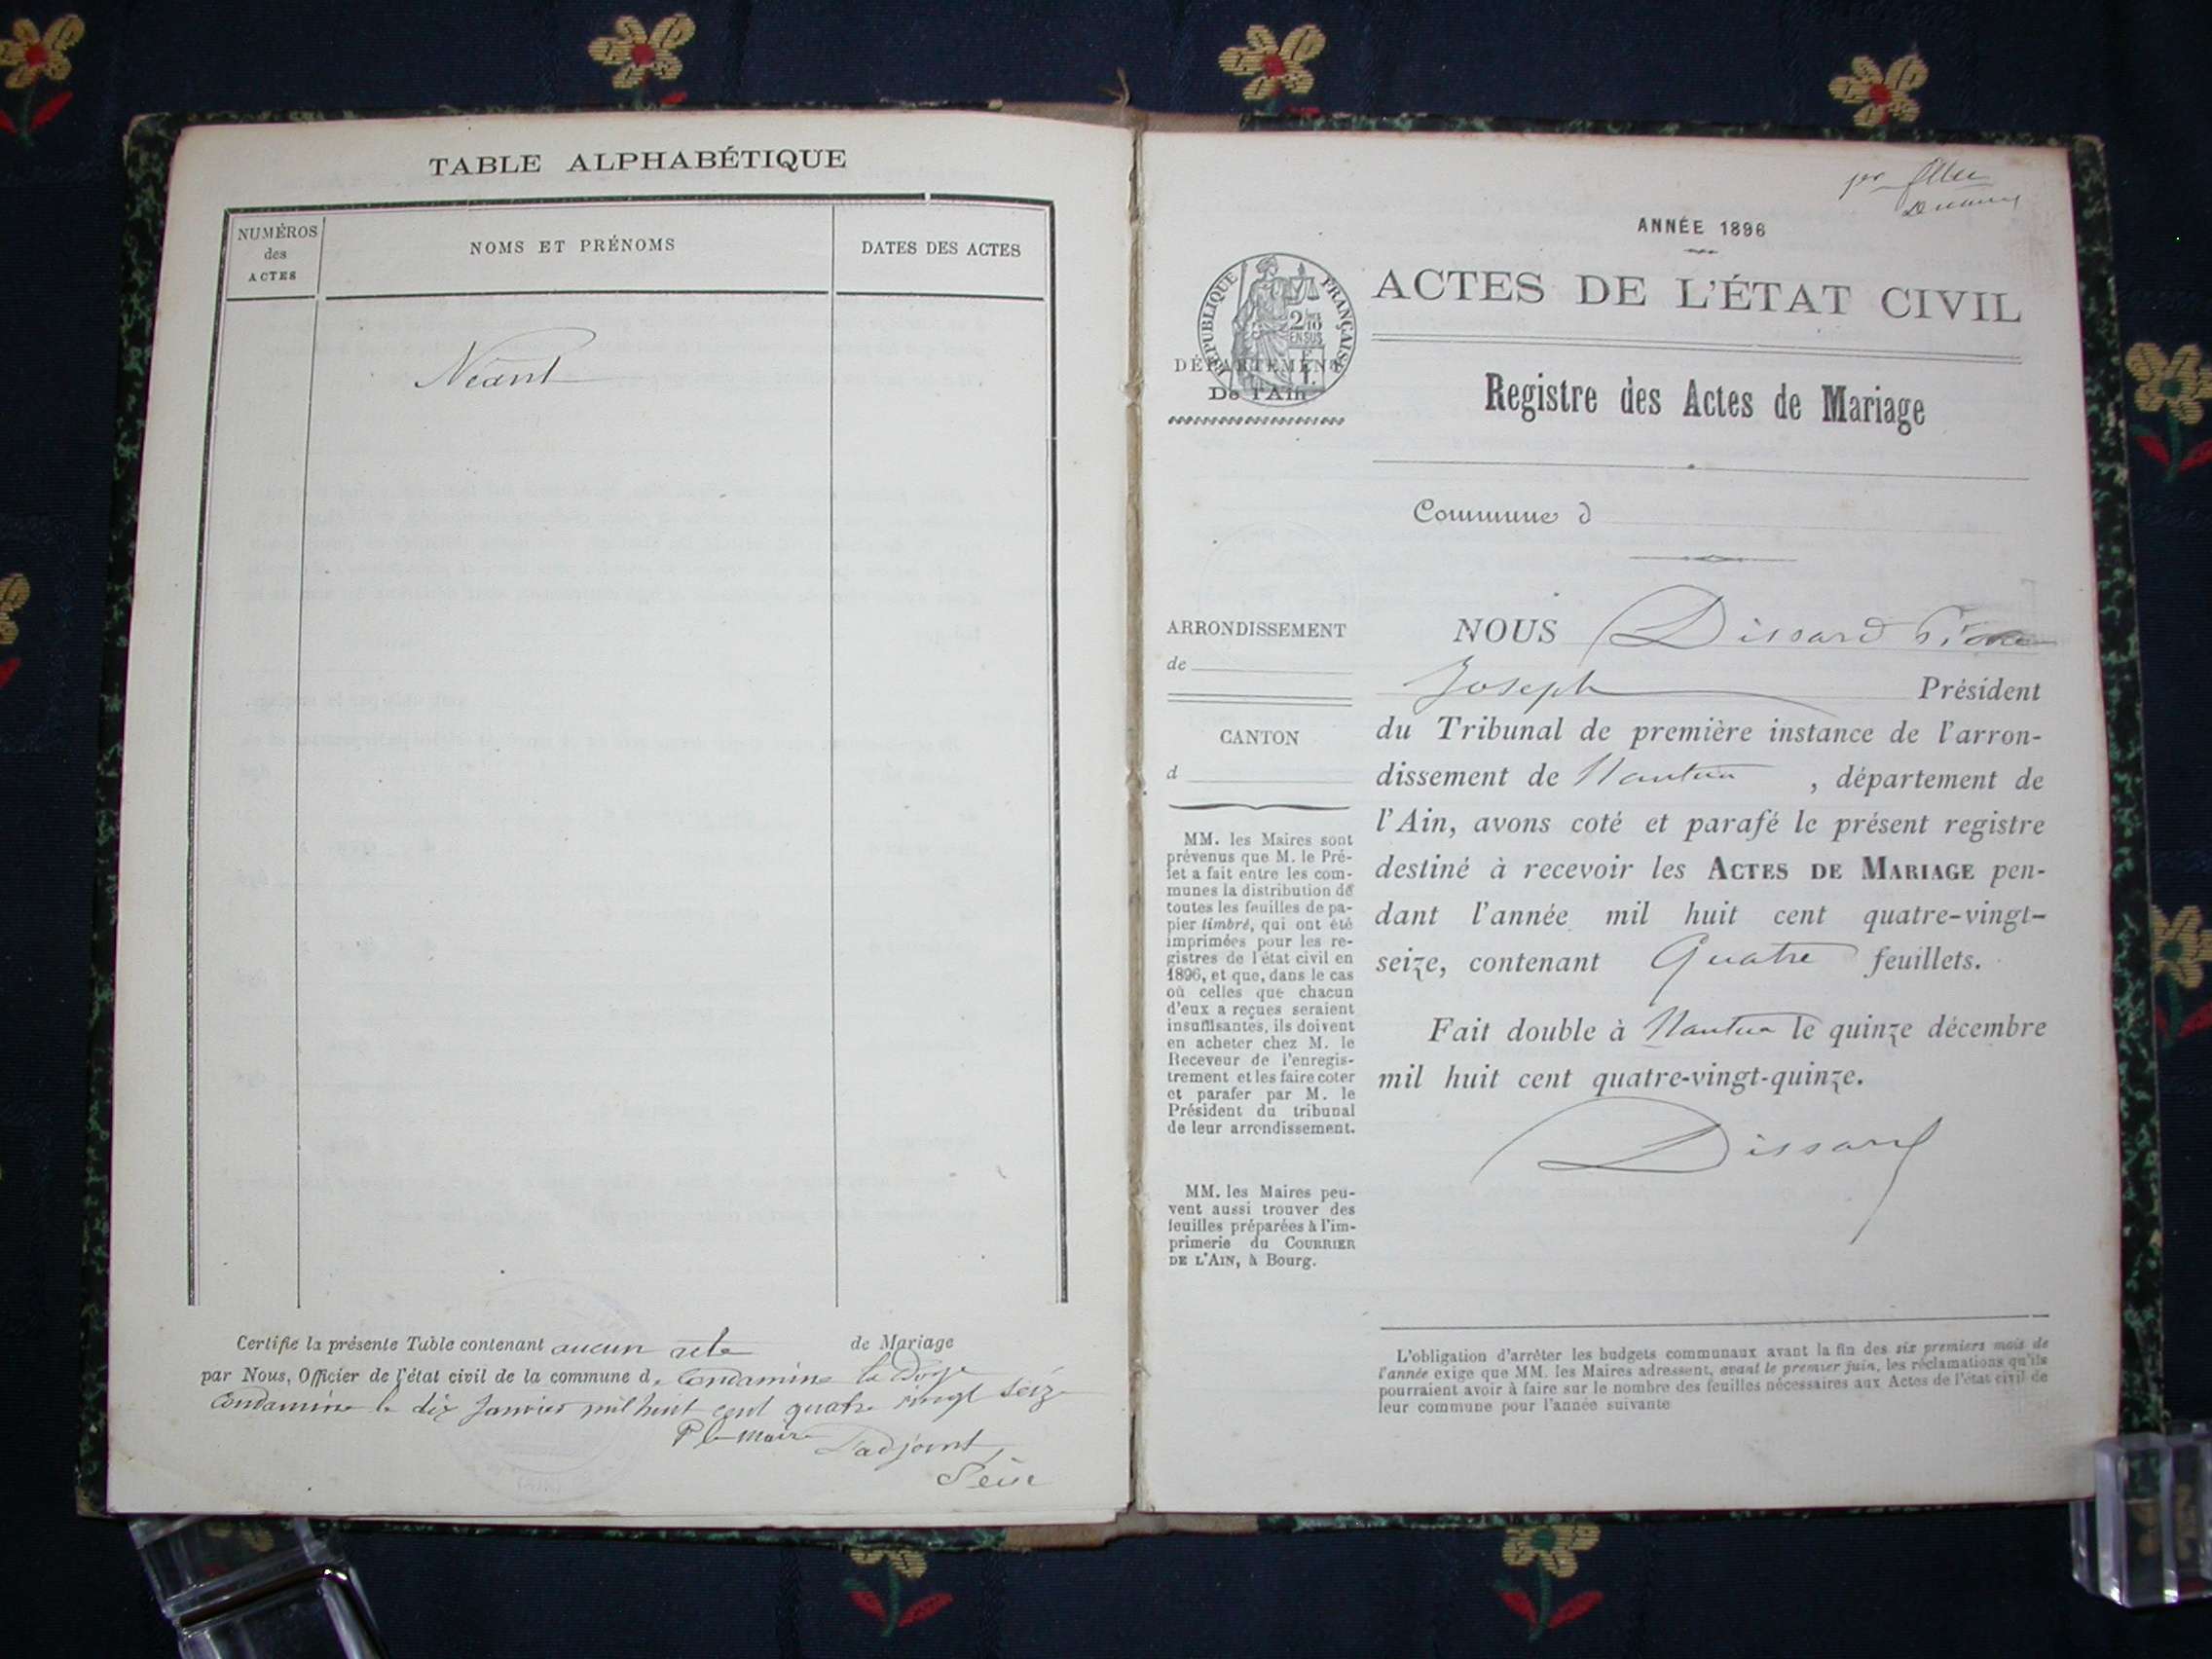 TABLE ALPHABÉTIQUE
NUMÉROS
des
ACTES
NOMS ET PRÉNOMS
DATES DES ACTES
Néant
Certifie la présente Table contenant aucun acte de Mariage
par Nous, Officier de l'état civil de la commune d. Condamine la Doye
Condamine le dix Janvier mil huit cent quatre vingt seize
P le maire L'adjoint,
ANNÉE 1896
ACTES DE L'ÉTAT CIVIL
RÉPUBLIQUE FRANÇAISE
2/10
EN SUS
DÉPARTEMENT
De l'Ain
Registre des Actes de Mariage
Commune d
ARRONDISSEMENT
de
CANTON
d
MM. les Maires sont
prévenus que M. le Pré-
fet a fait entre les com-
munes la distribution de
toutes les feuilles de pa-
pier timbré, qui ont été
imprimées pour les re-
gistres de l'état civil en
1896, et que, dans le cas
où celles que chacun
d'eux a reçues seraient
insuffisantes, ils doivent
en acheter chez M. le
Receveur de l'enregis-
trement et les faire coter
et parafer par M. le
Président du tribunal
de leur arrondissement.
MM. les Maires peu-
vent aussi trouver des
feuilles préparées à l'im-
primerie du COURRIER
DE L'AIN, à Bourg.
NOUS Dissard Pierre
Joseph Président
du Tribunal de première instance de l'arron-
dissement de Nantua , département de
l'Ain, avons coté et parafé le présent registre
destiné à recevoir les ACTES DE MARIAGE pen-
dant l'année mil huit cent quatre-vingt-
seize, contenant Quatre feuillets.
Fait double à Nantua le quinze décembre
mil huit cent quatre-vingt-quinze.
Dissard
L'obligation d'arrêter les budgets communaux avant la fin des six premiers mois de
l'année exige que MM. les Maires adressent, avant le premier juin, les réclamations qu'ils
pourraient avoir à faire sur le nombre des feuilles nécessaires aux Actes de l'état civil de
leur commune pour l'année suivante